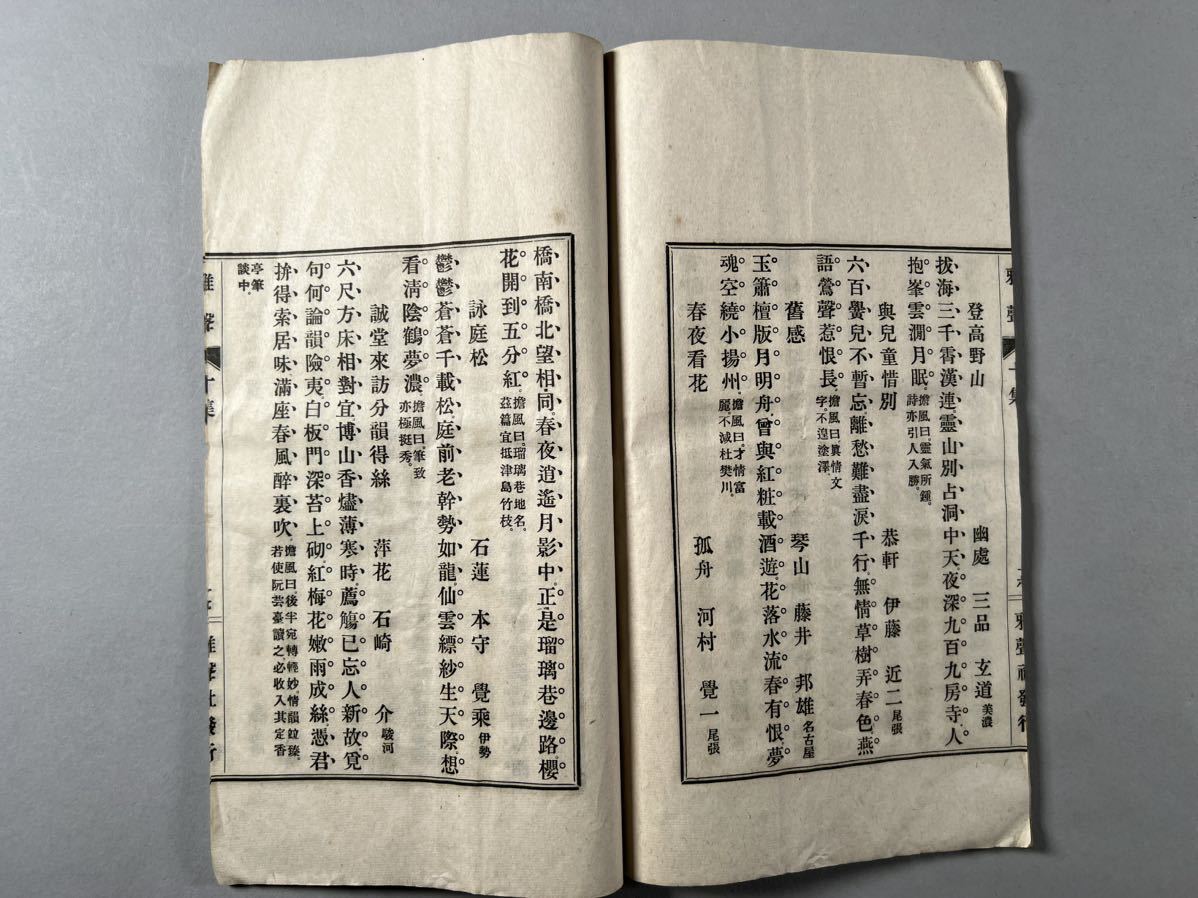 登高野山　幽處　三品　玄道 美濃
拔海三千霄漢連。靈山別占洞中天。夜深九百九房寺。人
抱峯雲澗月眠。擔風曰。靈氣所鍾。詩亦引人入勝。
與兒童惜別　恭軒　伊藤　近二 尾張
六百黌兒不暫忘。離愁難盡淚千行。無情草樹弄春色。燕
語鶯聲惹恨長。擔風曰。眞情文字。不遑塗澤。
舊感　琴山　藤井　邦雄 名古屋
玉簫檀版月明舟。曾與紅粧載酒遊。花落水流春有恨。夢
魂空繞小揚州。擔風曰。才情富麗。不減杜樊川。
春夜看花　孤舟　河村　覺一 尾張
雅聲 十集
雅聲社發行
橋南橋北望相同。春夜逍遙月影中。正是瑠璃巷邊路。櫻
花開到五分紅。擔風曰。瑠璃巷地名。茲篇宜抵津島竹枝。
詠庭松　石蓮　本守　覺乘 伊勢
鬱鬱蒼蒼千載松。庭前老幹勢如龍。仙雲縹紗生天際。想
看淸陰鶴夢濃。擔風曰。筆致亦極挺秀。
誠堂來訪分韻得絲　萍花　石崎　介 駿河
六尺方床相對宜。博山香燼薄寒時。薦觴已忘人新故。覓
句何論韻險夷。白板門深苔上砌。紅梅花嫩雨成絲。憑君
拚得索居味。滿座春風醉裏吹。擔風曰。後半宛轉輕妙。情韻竝臻。若使阮芸臺讀之。必收入其定香
亭筆談中。
雅聲 十集
雅聲社發行